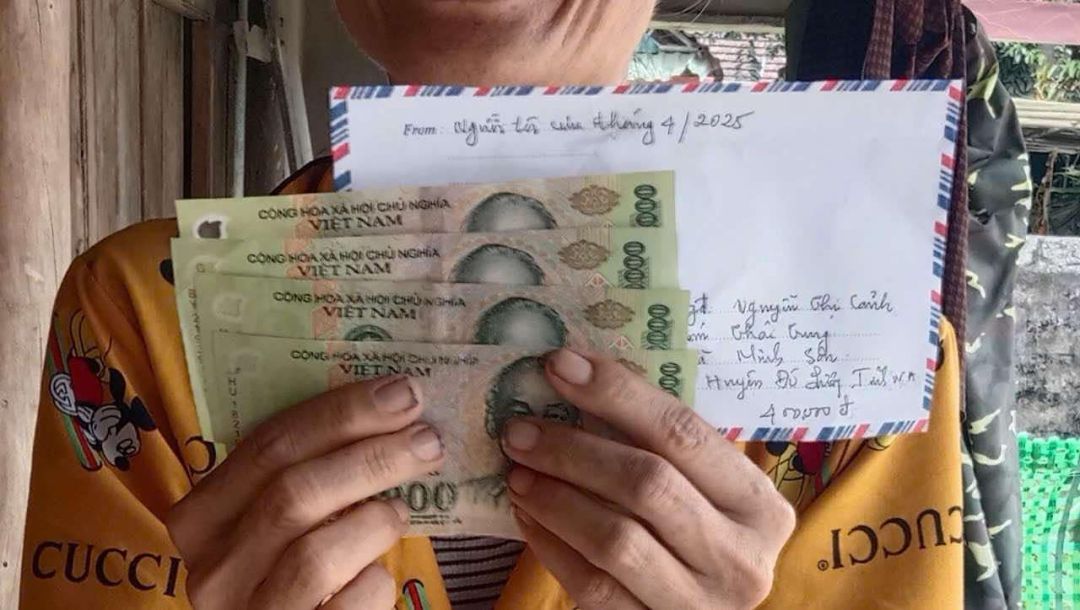 From: Người tháng 4/2025
CỘNG HÒA XÃ HỘI CHỦ NGHĨA
VIỆT NAM
000
CỘNG HÒA XÃ HỘI CHỦ NGHĨA
VIỆT NAM
000
CỘNG HÒA XÃ HỘI CHỦ NGHĨA
VIỆT NAM
000
CỘNG HÒA XÃ HỘI CHỦ NGHĨA
VIỆT NAM
000
000
gđ. Nguyễn Thị Cảnh
Trung
Minh Sơn
Huyện Đô Lương Tỉnh N.A
400000 đ
CUCCI
CUCCI